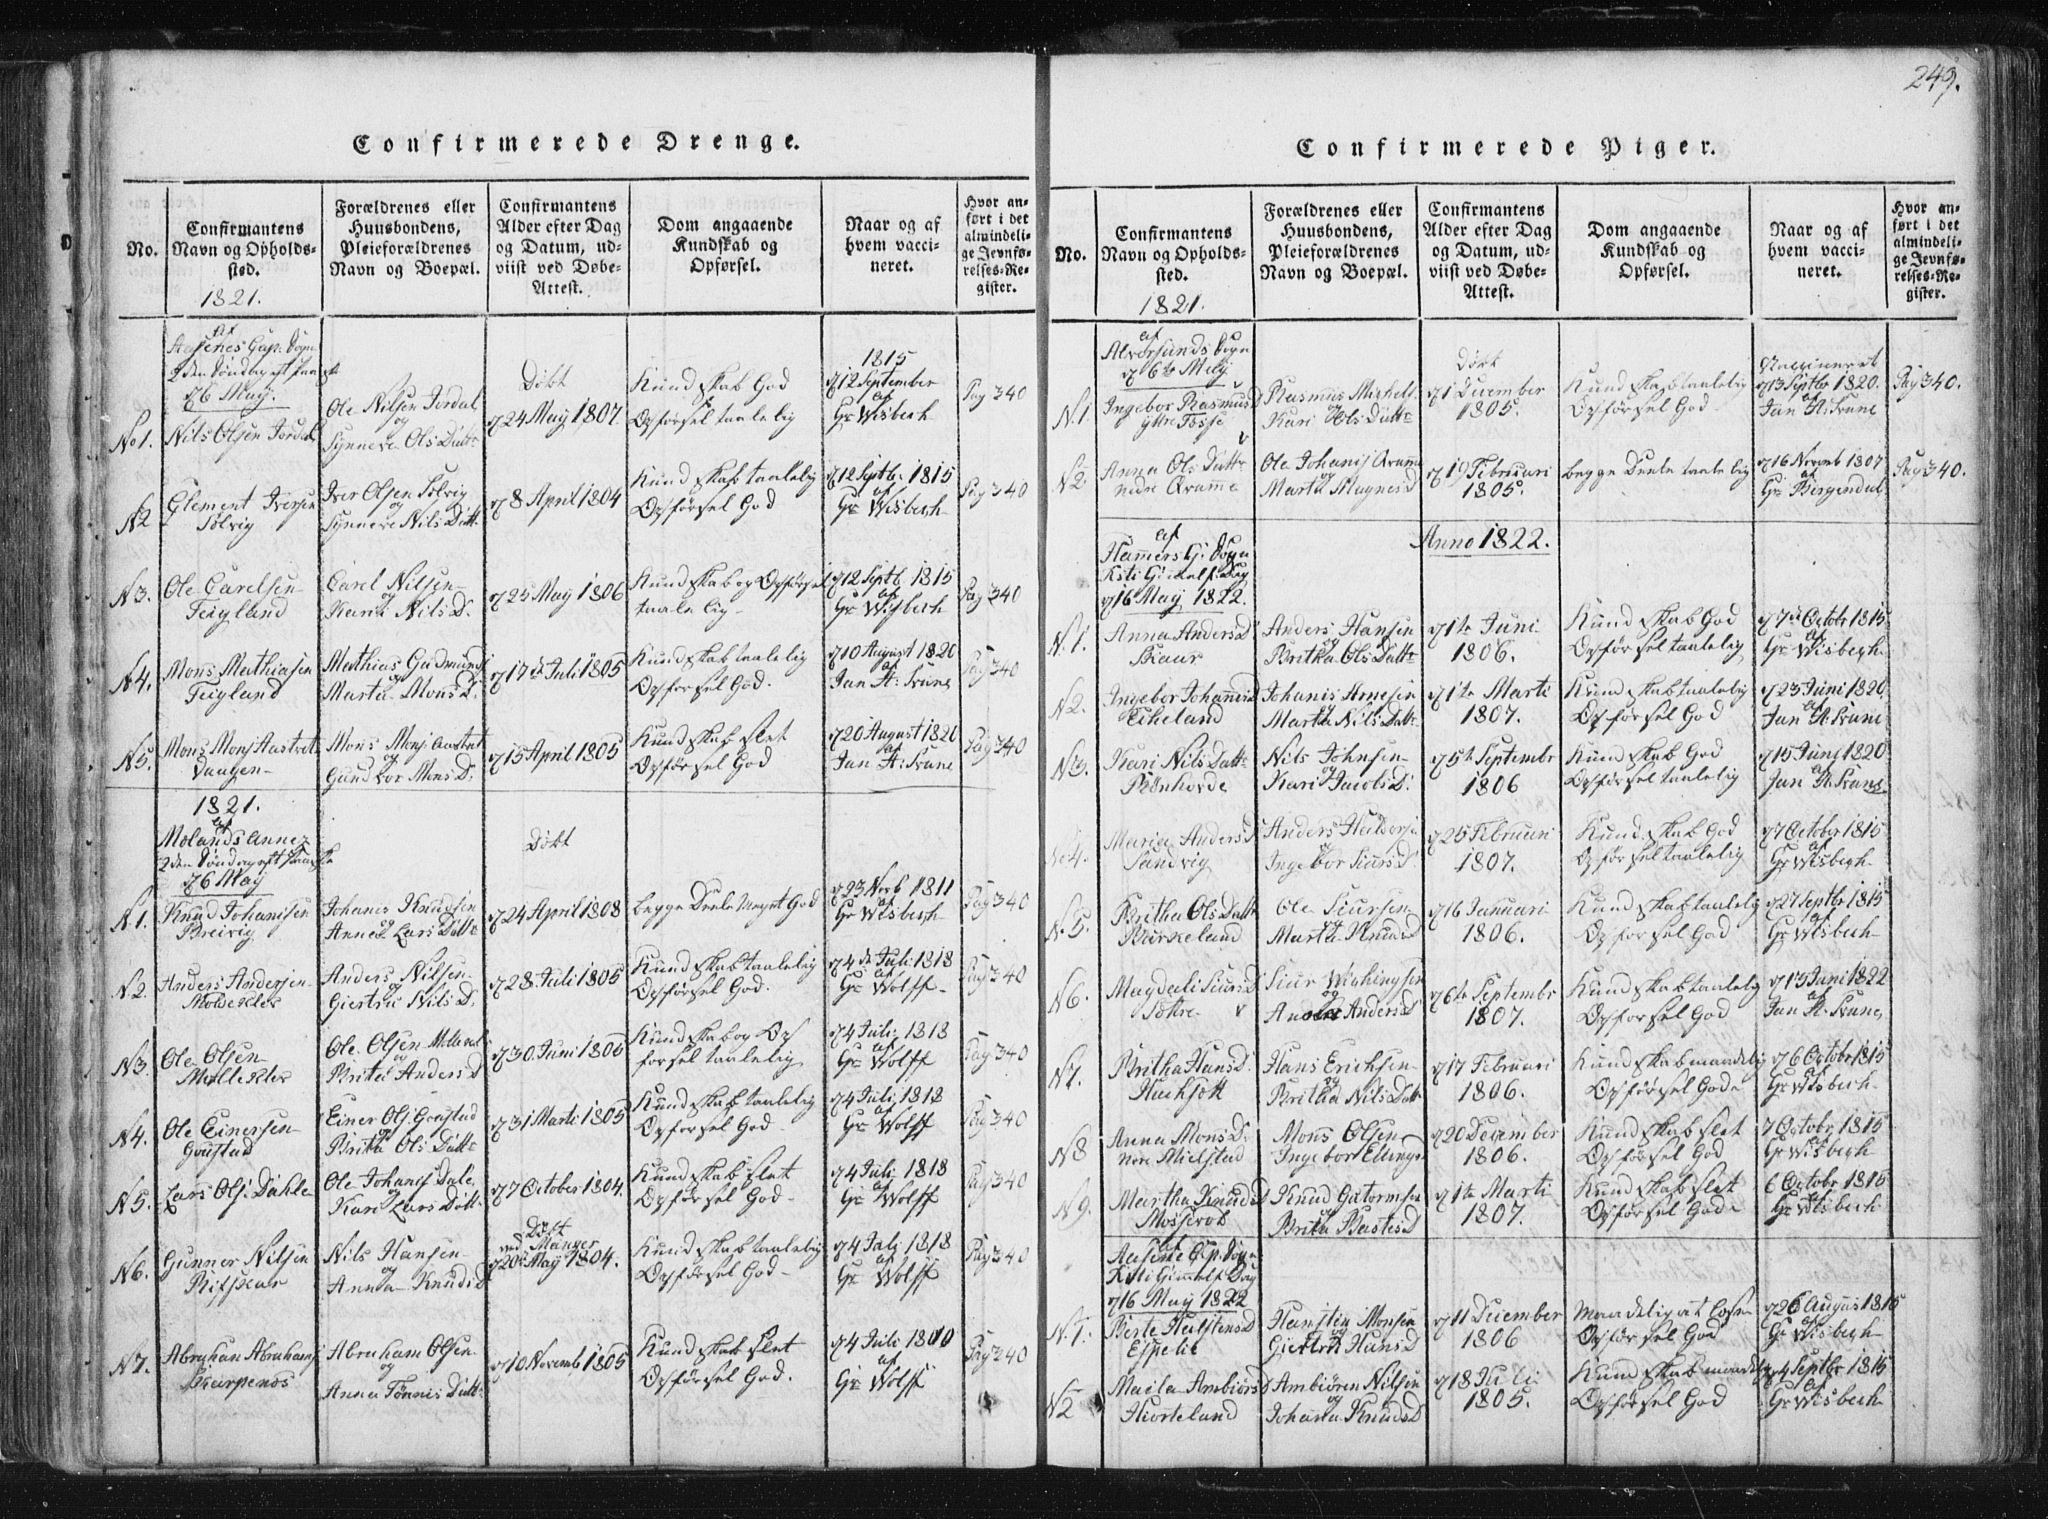 249.
Confirmerede Drenge.
No.
Confirmantens
Navn og Opholds-
sted.
1821.
Forældrenes eller
Huusbondens,
Pleieforældrenes
Navn og Boepæl.
Confirmantens
Alder efter Dag
og Datum, ud-
viist ved Døbe-
Attest.
Dom angaaende
Kundskab og
Opførsel.
Naar og af
hvem vacci-
neret.
Hvor an-
ført i det
almindeli-
ge Jevnfø-
relses-Re-
gister.
af
2den Søndag eft
76 May.
No 1.
Nils Olsen Jordal
Ole Nilsen Jordal
og
Synneve Ols Datt
Døbt
24 May 1807.
Kundskab God
Opførsel taalelig
1815
12 September
af
Gr Wisbech
Pag 340
N2
Clement Iversen
Solvig
Iver Olsen Solvig
og
Synneve Nils Datt
8 April 1804
Kundskab taalelig
Opførsel God
12 Septb. 1815
af
Gr Wisbech
Pag 340
N3.
Ole Carelsen
Teigland
Carel Nilsen
og
Kari Nils D.
May 1806
Kundskab og Opførsel
taalelig
12 Septb. 1815
af
Gr Wisbech
Pag 340
N4.
Mons Mathiasen
Teigland
Mathias Gudmunds
og
Marta Mons D.
17 Juli 1805
Kundskab taalelig
Opførsel God.
10 August 1820
af
Jan A: Trane
Pag 340
N5.
Mons Monsen
Vaagen
Mons
og
Mons D:
15 April 1805
Kundskab slet
Opførsel God
20 August 1820
af
Jan A: Trane
Pag 340
1821.
af
Molands Annex
2den Søndag eft
6 May
Døbt
N1.
Knud Johanisen
Breivig
Johanis Knudsen
og
Anne Lars Datt
24 April 1808
begge Deele Meget God
23 Novb 1811
af
Gr Wisbech
Pag 340
N2.
Anders Andersen
Anders Nilsen
og
Giertrue Nils D.
28. Juli 1805
Kundskab taalelig
Opførsel God.
4de Juli 1818
af
Gr Wolff
Pag 340
N3.
Ole Olsen
Ole Olsen
og
Brita Anders D
30 Juni 1805
Kundskab og Op
førsel taalelig
4 Juli 1818
af
Gr Wolff
Pag 340
N4.
Ole Einersen
Einer
og
Britha Ols Datt
31 Marti 1805
Kundskab taalelig
Opførsel God
4 Juli 1818
af
Gr Wolff
Pag 340
N5.
Lars Ols: Dahle
Ole Johanes Dale
og
Kari Lars Datt
7 October 1804.
Kundskab slet
Opførsel God
4 Juli 1818
af
Gr Wolff
Pag 340
N6.
Gunner Nilsen
Nils Hansen
og
Anna Knuds D
Døbt
ved Manger
20 May 1804.
Kundskab taalelig
Opførsel God
4 Juli 1818
af
Gr Wolff
Pag 340
N7.
Abraham Abrahams
Skarpenes
Abraham Olsen
og
Anna Tønnis Datt
10 Novemb 1805
Kundskab slet
Opførsel God.
4 Juli
af
Gr Wolff
Pag 340
Confirmerede Piger.
No.
Confirmantens
Navn og Opholds-
sted.
1821.
Forældrenes eller
Huusbondens,
Pleieforældrenes
Navn og Boepæl.
Confirmantens
Alder efter Dag
og Datum, ud-
viist ved Døbe-
Attest.
Dom angaaende
Kundskab og
Opførsel.
Naar og af
hvem vacci-
neret.
Hvor an-
ført i det
almindeli-
ge Jevnfø-
relses-Re-
gister.
af
Alversunds Sogn
6te May
N.1.
Ingebor Rasmus D
Yttre Fosse
Rasmus Michels
og
Kari Ols Datt
Døbt
1 December
1805.
Kundskab taalelig
Opførsel God
Vaccineret
13 Septbr 1820.
af
Jan A: Trane
Pag 340.
N2.
Anna Ols Datt
nere Qvamme
Ole Johanis Qvamme
og
Marta Magnes D
19 Februari
1805.
begge Deele taalelig
16 Novemb 1807
af
Gr Birgendal
Pag 340.
Anno 1822.
af
Hamers G. Sogn
Kisti Himmelf: Dag
16 May 1822.
N.1.
Anna Anders D
Anders Hansen
og
Britha Ols Datt
1te Juni
1806.
Kundskab God
Opførsel taalelig
7 Octobr 1815
af
Gr Wisbech
N2.
Ingebor Johanis D
Eikeland
Johanis Arnesen
og
Marta Nils Datt
1te Marti
1807.
Kundskab taalelig
Opførsel God
23 Juni 1820
af
Jan A. Trane
No 3.
Kari Nils Datt
Rønhovde
Nils Johnsen
og
Kari Jacobs D.
5te Septembr
1806
Kundskab God
Opførsel taalelig
15 Juni 1820
af
Jan A. Trane
No 4.
Maria Anders D
Sandvig
Anders Haldorsen
og
Ingebor Siurs D
25 Februari
1807.
Kundskab God
Opførsel taalelig
7 October 1815
af
Gr Wisbech
N.5.
Britha Ols Datt
Birkeland
Ole Siursen
og
Marta Knuds D
16 Januari
1806.
Kundskab taalelig
Opførsel God
27 Septbr 1815
af
Gr Wisbech
N6.
Magdeli Siurs D
Siur
og
Anders D
6te Septembr
1807.
Kundskab taalelig
Opførsel God
13 Juni 1822
af
Jan A. Trane
N7.
Britha Hans D.
Hans Erichsen
og
Britha Nils Datt
17 Februari
1806.
Kundskab maadelig
Opførsel God
6 Octobr 1815
af
Gr Wisbech
N8
Anna Mons D.
nere Mielstad
Mons Olsen
og
Ingebor Ellings
20 December
1806.
Kundskab slet
Opførsel God
7 Octobr 1815
af
Gr Wisbech
N9.
Martha Knuds D
Mosevol
Knud Gutormsen
og
Brita Baltes D
1te Marti
1807.
Kundskab slet
Opførsel God
6 Octobr 1815
af
Gr Wisbech
af
Kisti Himmelf: Dag
16 May 1822
N1.
Berte Halstens D
Espelie
Monsen
og
Giertru Hans D
11 December
1806
Maadelig
Opførsel God
26 August 1815
af
Gr Wisbech
N2
Maila Ambiørs D
Hiorteland
Ambiøren Nilsen
og
Johanna Knuds D
18 Juli
1805.
Kundskab maadelig
Opførsel God
4 Septbr 1815
af
Gr Wisbech